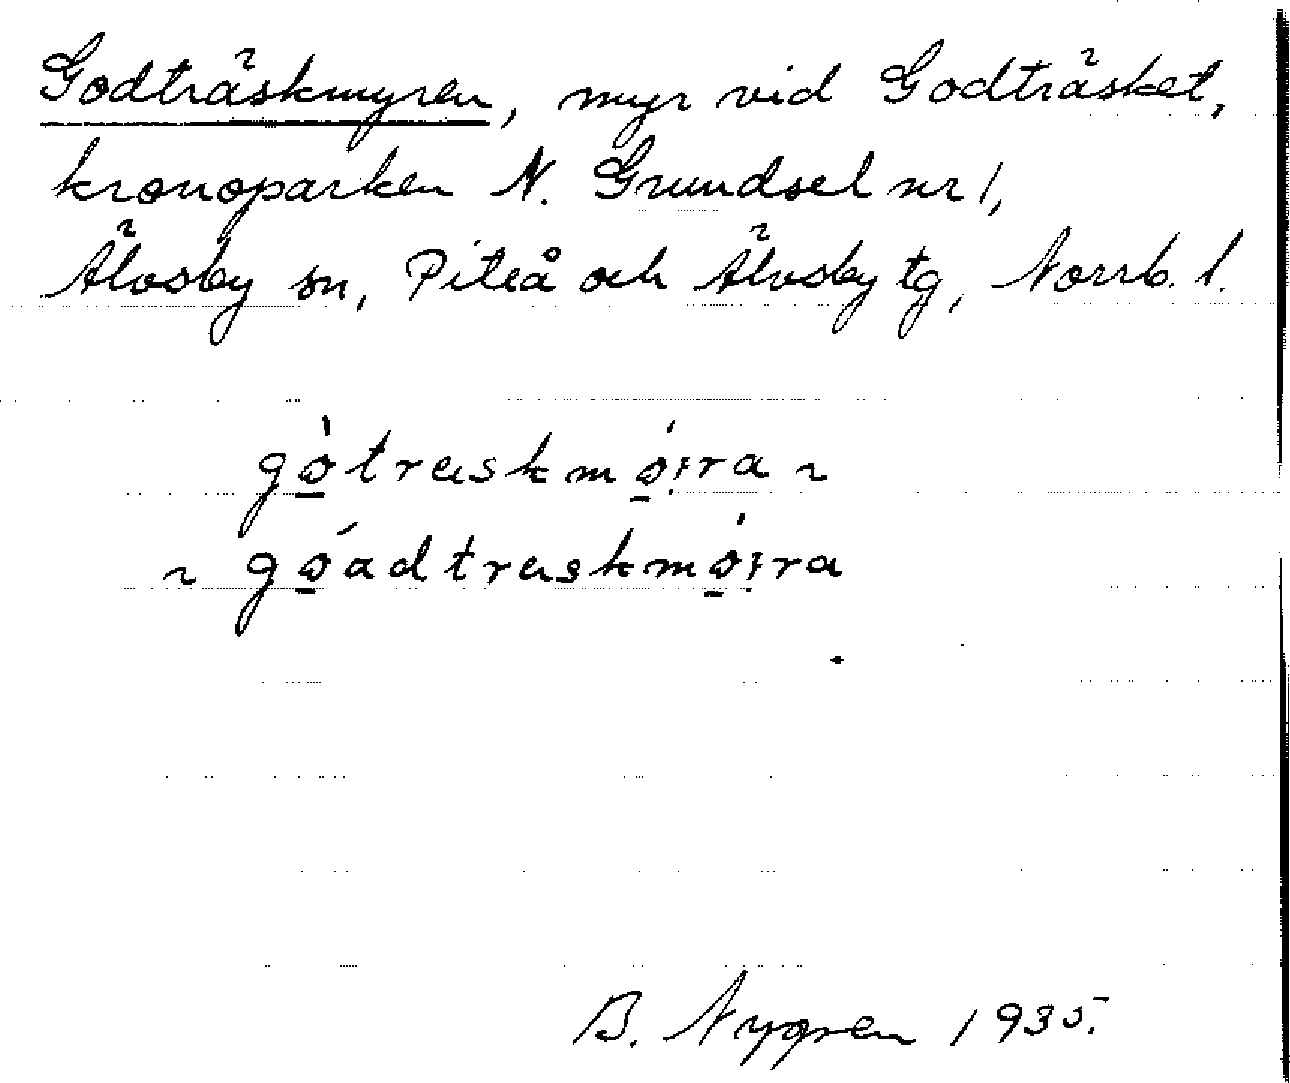 Godträskmyren, myr vid Godträsket,
kronoparken N. Grundsel nr 1,
Älvsby sn, Piteå och Älvsby tg, Norrb. l.
gò̱træskmó̱i̯ra ~
~ gó̱adtræskmó̱i̯ra
B. Nygren 1935.